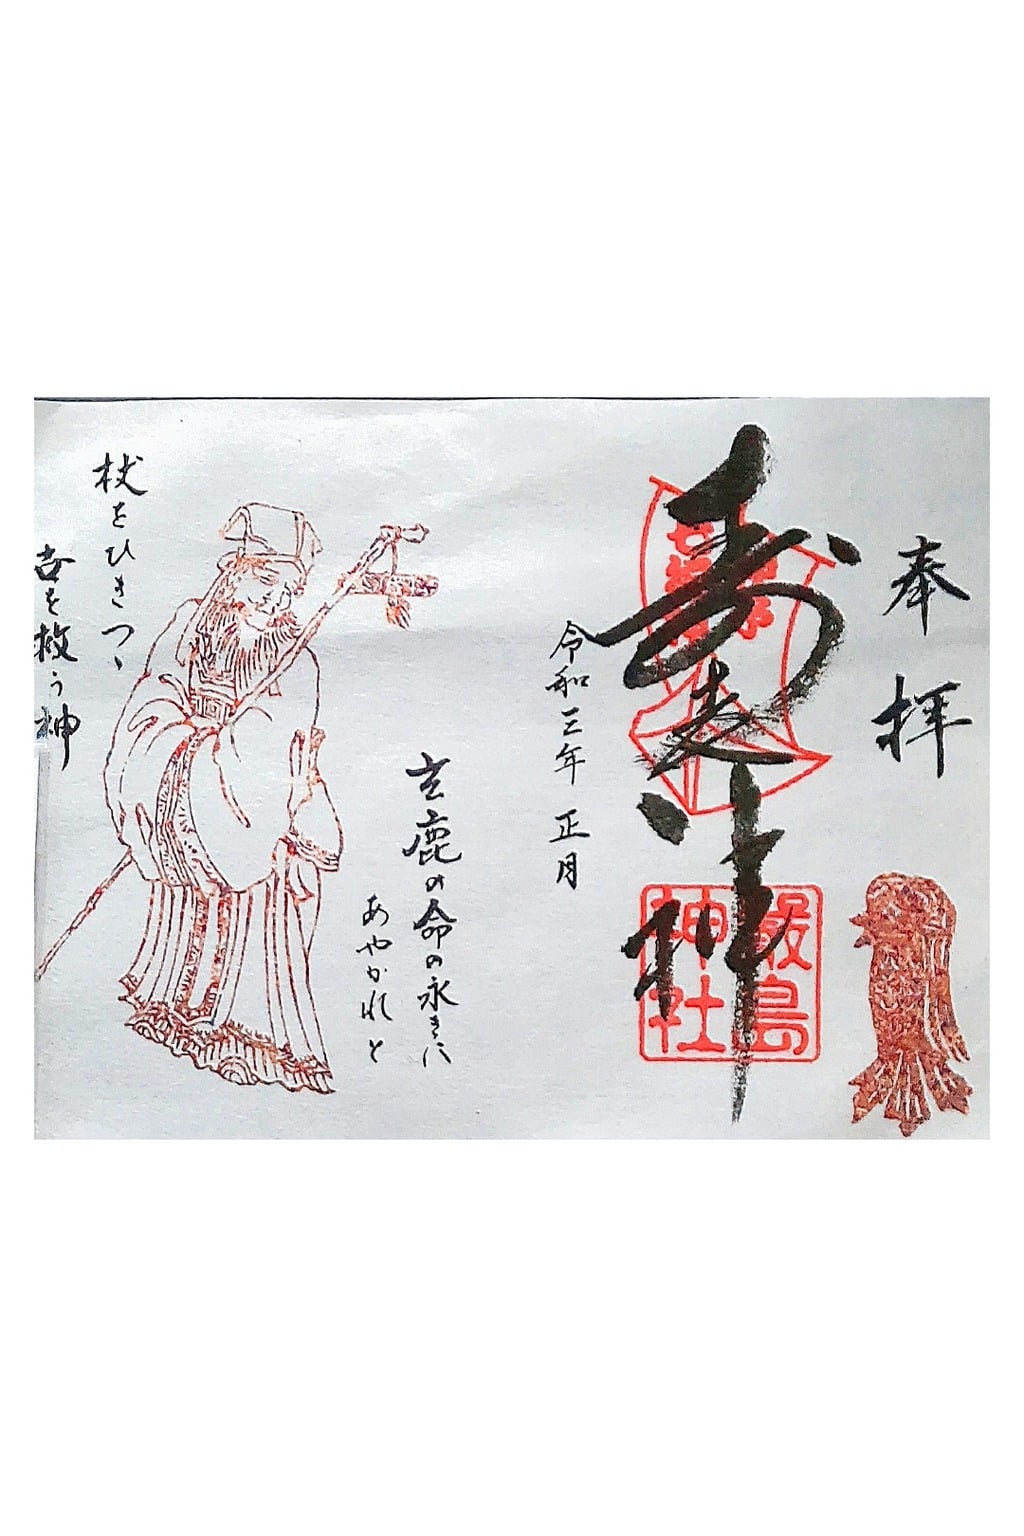 奉拝
寿老神
嚴島
神社
令和三年正月
玄鹿の命の永きに
あやかれと
杖をひきつゝ
世を救う神